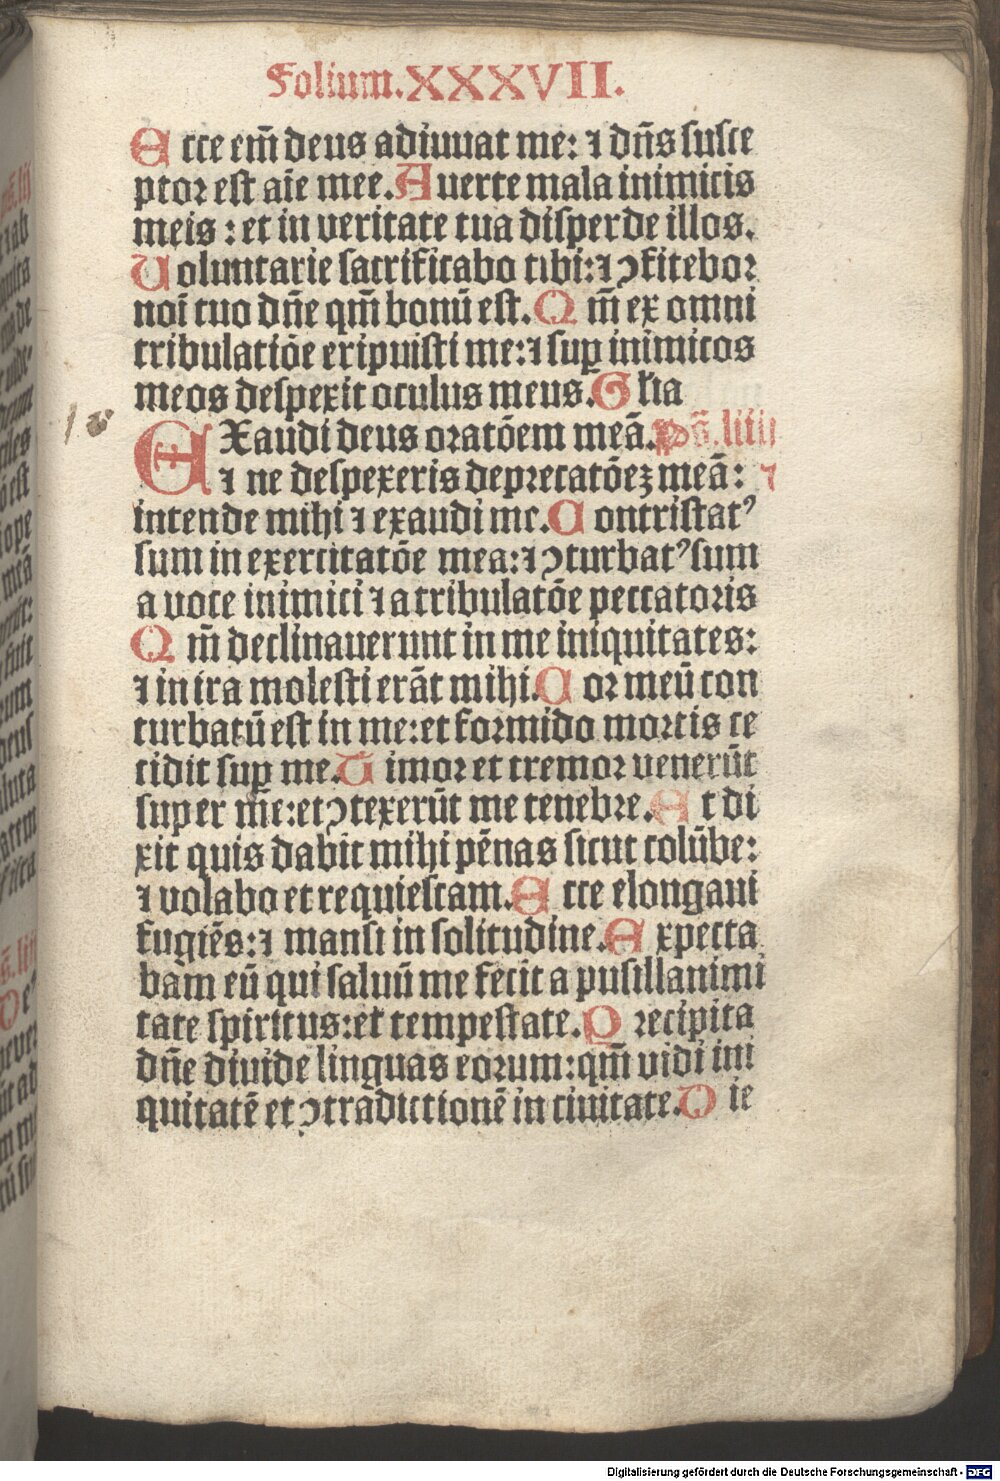 Folium.XXXVII.
Ecce em̄ deus adiuuat me: ⁊ dn̄s susce
ptor est aīe mee. Auerte mala inimicis
meis : et in veritate tua disperde illos.
Uoluntarie sacrificabo tibi: ⁊ ↄfitebor
noī tuo dn̄e qm̄ bonū est. Qm̄ ex omni
tribulatiōe eripuisti me: ⁊ suꝑ inimicos
meos despexit oculus meus. Glīa
EXaudi deus oratōem meā. Ps̄. liiii
⁊ ne despexeris deprecatōeꝫ meā: ⁊
intende mihi ⁊ exaudi me. Contristatꝰ
sum in exercitatōe mea: ⁊ ↄturbatꝰ sum
a voce inimici ⁊ a tribulatōe peccatoris
Qm̄ declinauerunt in me iniquitates:
⁊ in ira molesti erāt mihi. Cor meū con
turbatū est in me: et formido mortis ce
cidit suꝑ me. Timor et tremor uenerūt
super me: et ↄtexerūt me tenebre. Et di
xit quis dabit mihi pēnas sicut colūbe:
⁊ volabo et requiescam. Ecce elongaui
fugiēs: ⁊ mansi in solitudine. Expecta
bam eū qui saluū me fecit a pusillanimi
tate spiritus: et tempestate. Precipita
dn̄e diuide linguas eorum: qm̄ vidi ini
quitatē et ↄtradictionē in ciuitate. Die
Digitalisierung gefördert durch die Deutsche Forschungsgemeinschaft - DFG